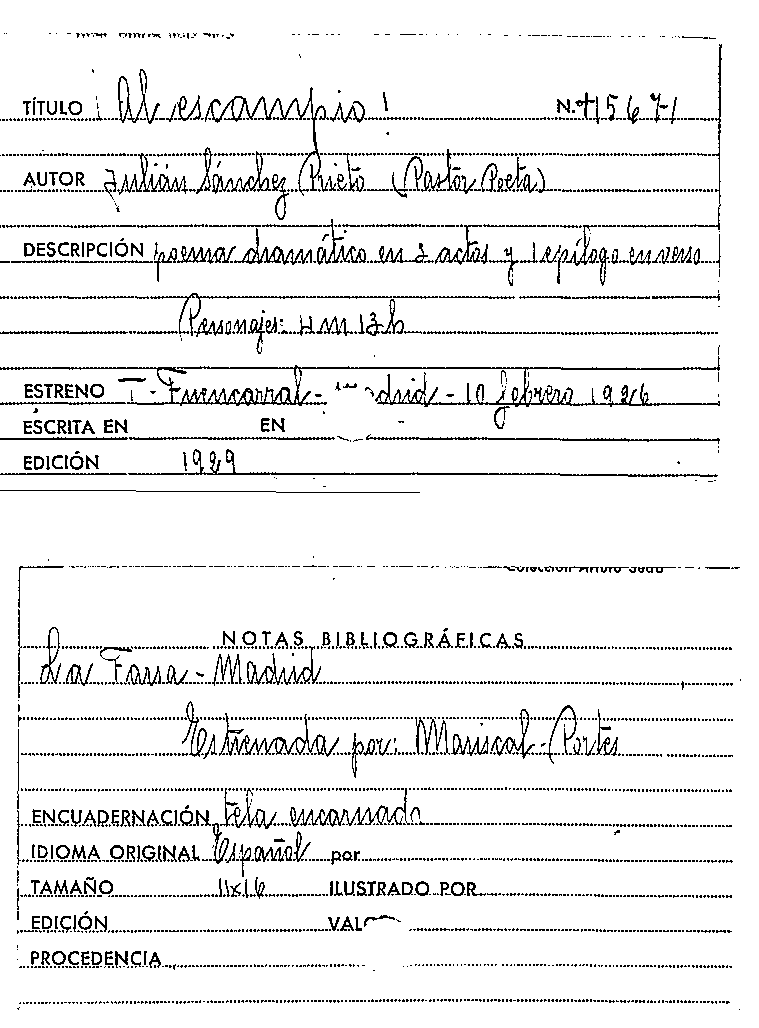 TÍTULO ¡Al escampío! N.
AUTOR Julián Sánchez Prieto (Pastor Poeta)
DESCRIPCIÓN poema dramático en 3 actos y 1 epílogo en verso
Personajes: 4 m 13 h
ESTRENO T. Fuencarral - Madrid - 10 febrero 1926
ESCRITA EN EN
EDICIÓN 1929
NOTAS BIBLIOGRÁFICAS
La Farsa - Madrid
Estrenada por: Mariscal - Portes
ENCUADERNACIÓN tela encarnada
IDIOMA ORIGINAL Español por
TAMAÑO 11x16 ILUSTRADO POR
EDICIÓN
PROCEDENCIA